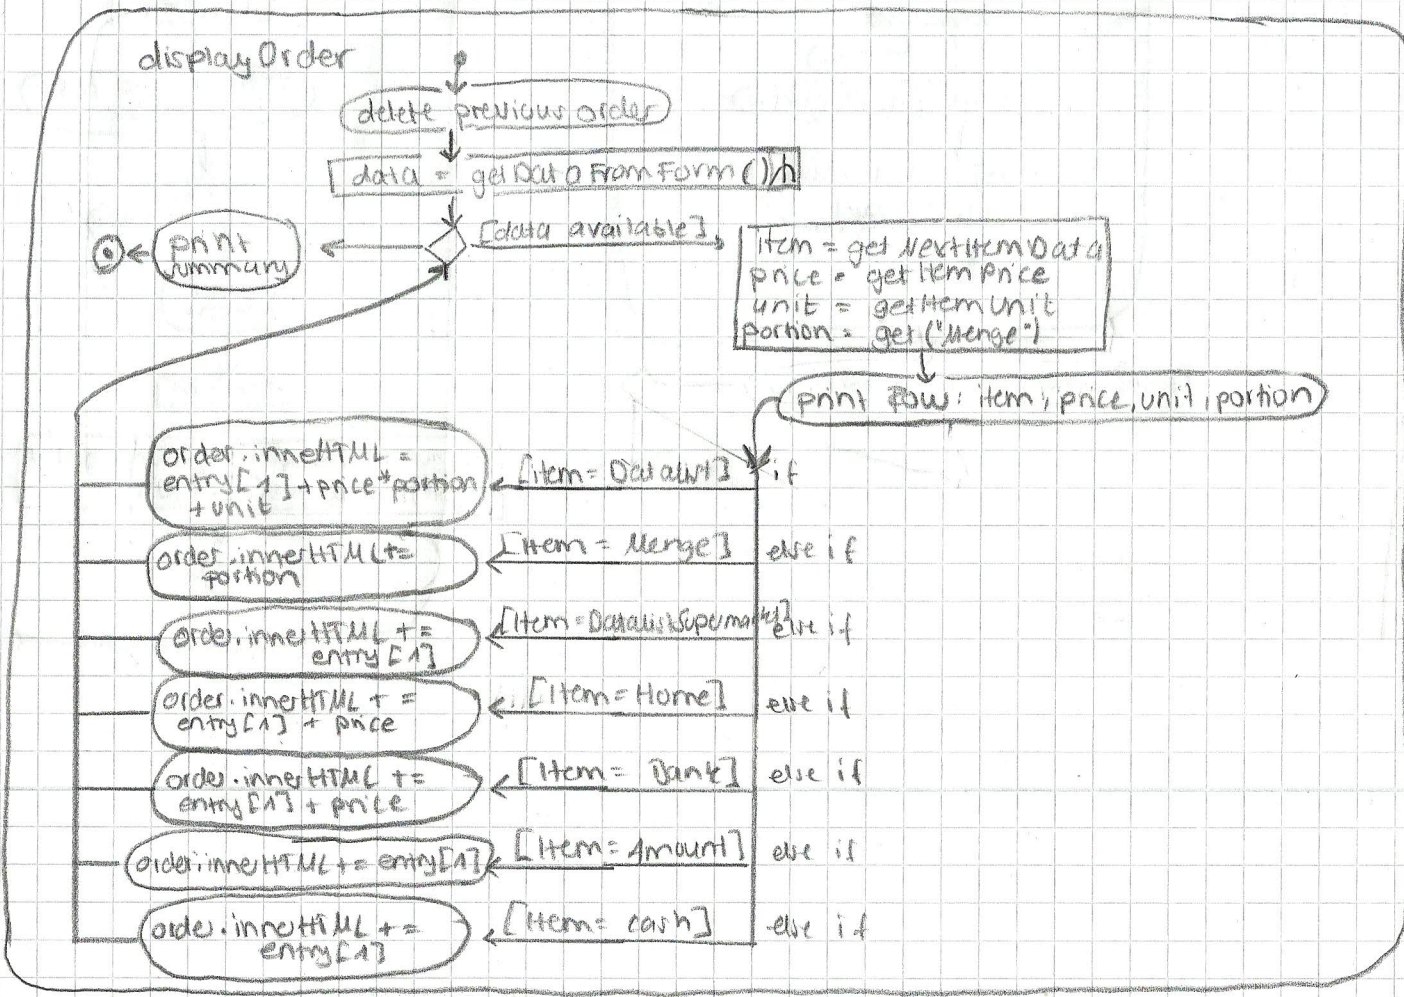 displayOrder
delete previous order
data = getDataFromForm()
[data available]
print
summary
item = getNextItemData
price = getItemPrice
unit = getItemUnit
portion = get("Menge")
print row: item, price, unit, portion
order.inneHTML =
entry[1] + price*portion
+ unit
[item = Datalist]
if
order.innerHTML +=
portion
[Item = Menge]
else if
order.innerHTML +=
entry[1]
[Item = DatalistSupermarket]
else if
order.innerHTML + =
entry[1] + price
[Item = Home]
else if
order.innerHTML +=
entry[1] + price
[Item =
else if
order.innerHTML += entry[1]
[Item = Amount]
else if
order.innerHTML + =
entry[1]
[Item = cash]
else if